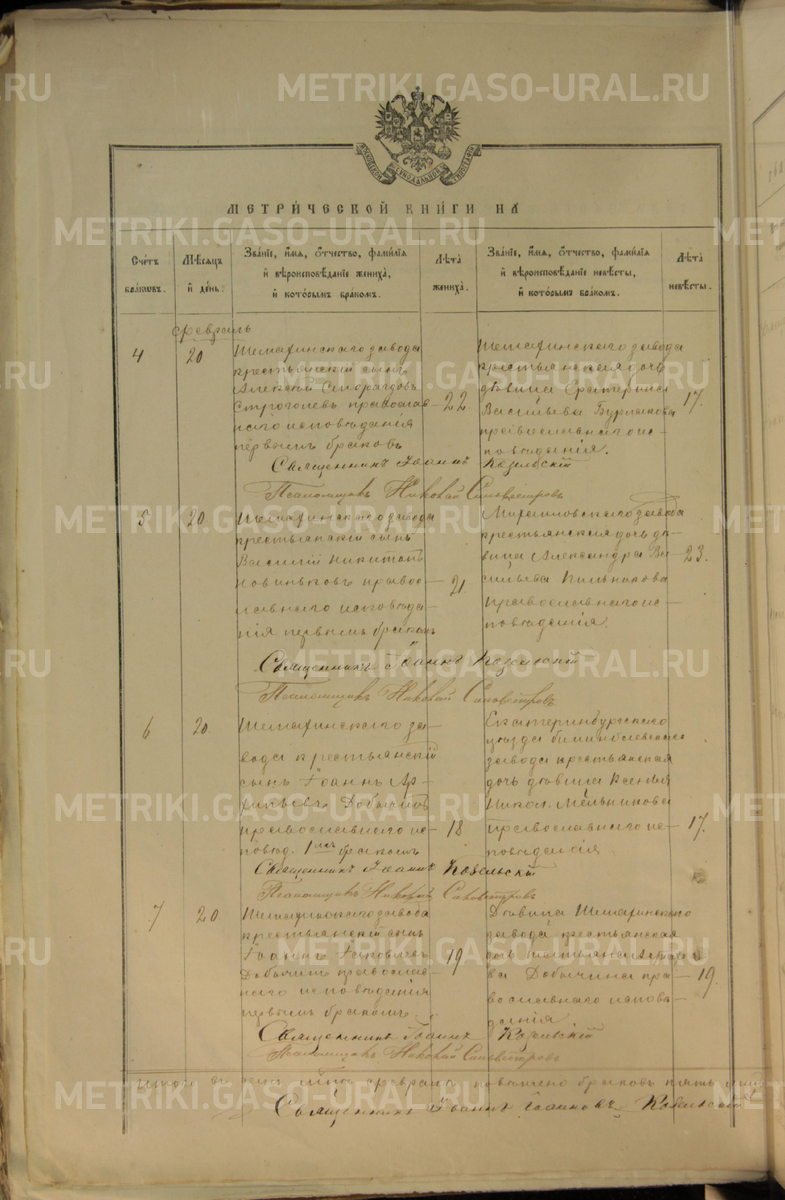 METRIKI.GASO-URAL.RU
МЕТРИ́ЧЕСКОЙ КНИ́ГИ НА
Сче́тъ бра́ковъ.
Мѣ́сяцъ и҆ де́нь.
Зва́нїе, и҆́мя, ѻ҆́тчество, фами́лїя
и҆ вѣроисповѣ́данїе жениха̀,
и҆ кото́рымъ бра́комъ.
Лѣ́та жениха̀.
Зва́нїе, и҆́мя, ѻ҆́тчество, фами́лїя
и҆ вѣроисповѣ́данїе невѣ́сты,
и҆ кото́рымъ бра́комъ.
Лѣ́та невѣ́сты.
Февраль
4
20
Шемахинскаго завода
крестьянскій сынъ
Алексѣй
православ
наго исповѣданія
первымъ бракомъ
22
Шемахинскаго завода
крестьянская дочь
дѣвица
Васильева
православнаго ис-
повѣданія.
17.
Священникъ Іоаннъ Козельскій
Псаломщикъ Николай Сильвестровъ
5
20
Шемахинскаго завода
крестьянскій сынъ
Василій Никитинъ
Новиньковъ правос
лавнаго исповѣда
нія первымъ бракомъ
21.
завода
крестьянская дочь дѣ-
вица Александра Ва
сильева
православнаго ис-
повѣданія.
23.
Священникъ Іоаннъ Козельскій
Псаломщикъ Николай Сильвестровъ
6
20
Шемахинскаго за-
вода крестьянскій
сынъ Іоаннъ Ар-
хиповъ Добычинъ
православнаго ис-
повѣд. 1мъ бракомъ
18
Екатеринбургскаго
уѣзда Билимбаевскаго
завода крестьянская
дочь дѣвица Ксенія
Никол. Мельникова
Православнаго ис-
повѣданія
17.
Священникъ Іоаннъ Козельскій
Псаломщикъ Николай Сильвестровъ
7
20
Шемахинскаго завода
крестьянскій сынъ
Іоаннъ Іаковлевъ
Добычинъ православ-
наго исповѣданія
первымъ бракомъ.
19
Дѣвица Шемахинскаго
завода крестьянская
дочь Татьяна
ва Добычина пра
вославнаго исповѣ-
данія
19.
Священникъ Іоаннъ Козельскій
Псаломщикъ Николай Сильвестровъ
февралѣ повѣнчано браковъ пять
Священникъ Іоаннъ Іоанновъ Козельскій